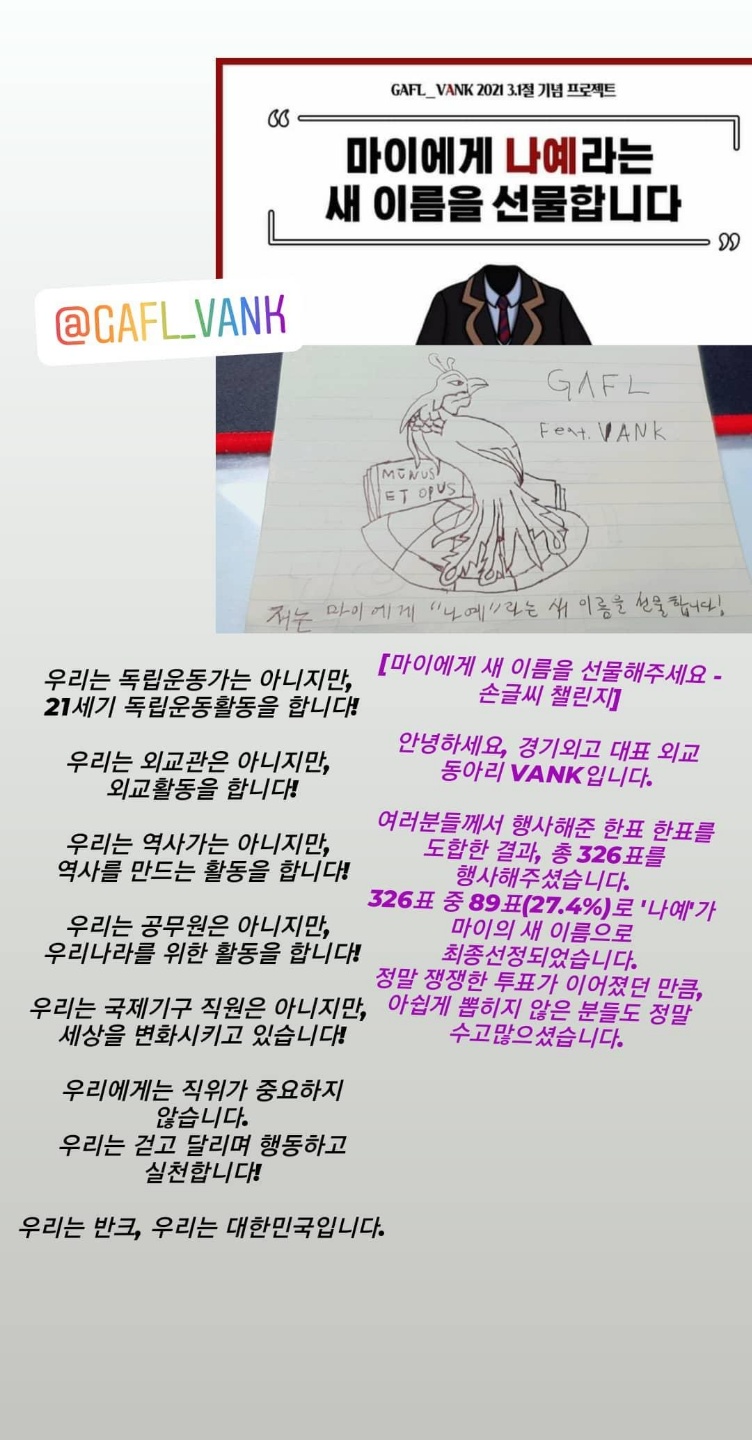 GAFL_VANK 2021 3.1절 기념 프로젝트
마이에게 나예라는
새 이름을 선물합니다
@GAFL_VANK
GAFL
Feat. VANK
MUNUS
ET OPUS
저는 마이에게 "나예"라는 새 이름을 선물합니다!
우리는 독립운동가는 아니지만,
21세기 독립운동활동을 합니다!
우리는 외교관은 아니지만,
외교활동을 합니다!
우리는 역사가는 아니지만,
역사를 만드는 활동을 합니다!
우리는 공무원은 아니지만,
우리나라를 위한 활동을 합니다!
우리는 국제기구 직원은 아니지만,
세상을 변화시키고 있습니다!
우리에게는 직위가 중요하지
않습니다.
우리는 걷고 달리며 행동하고
실천합니다!
우리는 반크, 우리는 대한민국입니다.
[마이에게 새 이름을 선물해주세요 -
손글씨 챌린지]
안녕하세요, 경기외고 대표 외교
동아리 VANK입니다.
여러분들께서 행사해준 한표 한표를
도합한 결과, 총 326표를
행사해주셨습니다.
326표 중 89표(27.4%)로 '나예'가
마이의 새 이름으로
최종선정되었습니다.
정말 쟁쟁한 투표가 이어졌던 만큼,
아쉽게 뽑히지 않은 분들도 정말
수고많으셨습니다.